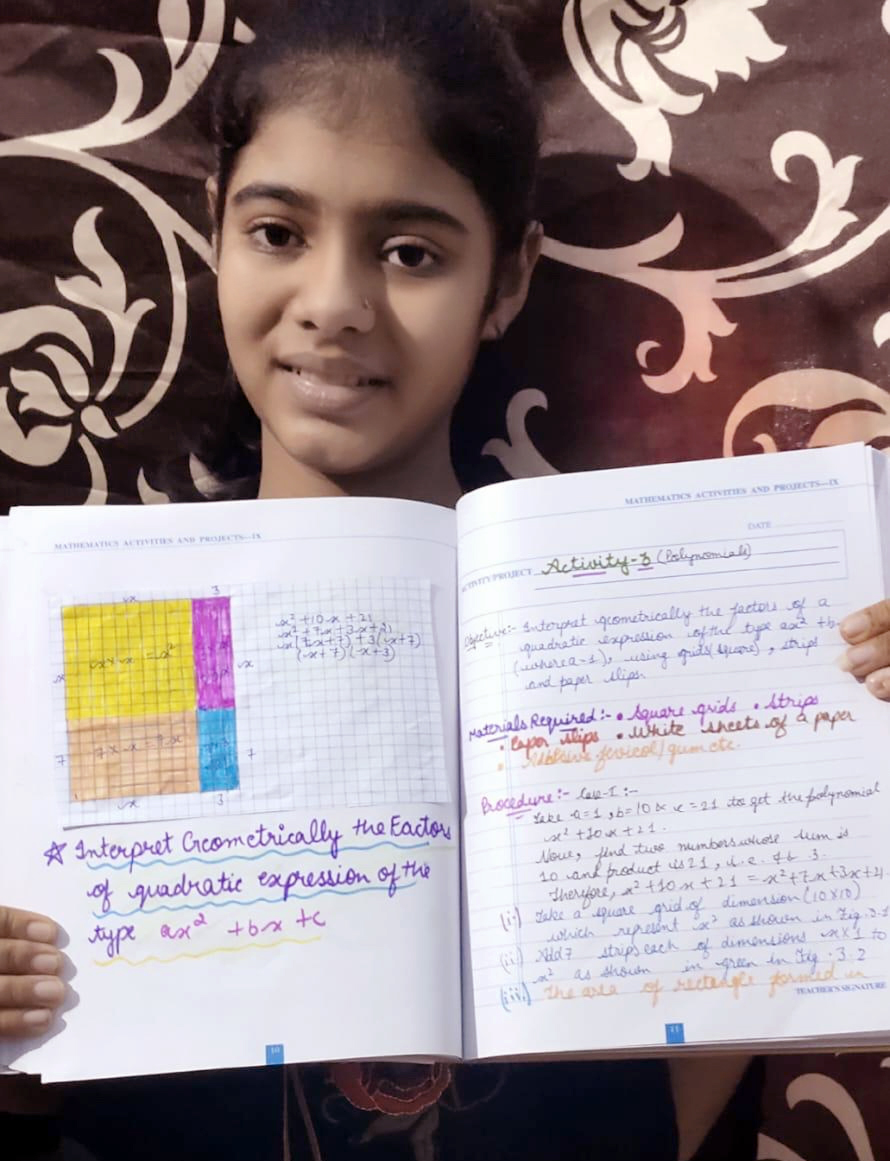 MATHEMATICS ACTIVITIES AND PROJECTS—IX
x
3
x × x = x²
x
x
7
7 × x = 7x
7
x
3
x² + 10x + 21
x² + 7x + 3x + 21
x(x + 7) + 3(x + 7)
(x + 7) (x + 3)
☆ Interpret Geometrically the Factors
of quadratic expression of the
type ax² + bx + c
10
MATHEMATICS ACTIVITIES AND PROJECTS—IX
DATE
ACTIVITY/PROJECT Activity-3 (Polynomials)
Objective:- Interpret geometrically the factors of a
quadratic expression of the type ax² + b-
(where a = 1), using grids(square), strips
and paper slips.
Materials Required:- • Square grids • Strips
• Paper slips • White sheets of a paper
• Adhesive fevicol/gum etc.
Procedure:- Case-I :-
Take a = 1, b = 10 & c = 21 to get the polynomial
x² + 10x + 21.
Now, find two numbers whose sum is
10 and product is 21, i.e. 7 & 3.
Therefore, x² + 10x + 21 = x² + 7x + 3x + 21
(i) Take a square grid of dimension (10×10)
which represent x² as shown in Fig. 3.1
(ii) Add 7 strips each of dimensions x×1 to
x² as shown in green in Fig. 3.2
(iii) The area of rectangle formed in
TEACHER'S SIGNATURE
11